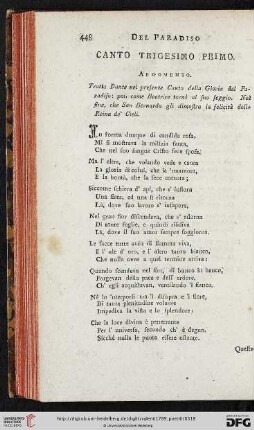 448 DEL PARADISO
CANTO TRIGESIMO PRIMO.
ARGOMENTO.
Tratta Dante nel presente Canto della Gloria del Pa-
radiso; poi come Beatrice tornò al suo seggio. Nel
fine, che San Bernardo gli dimostra la felicità della
Reina de' Cieli.
In forma dunque di candida rosa,
Mi si mostrava la milizia santa,
Che nel suo sangue Cristo fece sposa;
Ma l' altra, che volando vede e canta
La gloria di colui, che la 'nnamora,
E la bontà, che la fece cotanta;
Siccome schiera d' api, che s' infiora
Una fiata, ed una si ritorna
Là, dove suo lavoro s' insapora,
Nel gran fior discendeva, che s' adorna
Di tante foglie, e quindi risaliva
Là, dove il suo amor sempre soggiorna.
Le facce tutte avén di fiamma viva,
E l' ale d' oro, e l' altro tanto bianco,
Che nulla neve a quel termine arriva:
Quando scendean nel fior, di banco in banco,
Porgevan della pace e dell' ardore,
Ch' egli acquistavan, ventilando 'l fianco.
Nè lo 'nterporsi tra 'l disopra e 'l fiore,
Di tanta plenitudine volante
Impediva la vista e lo splendore;
Che la luce divina è penetrante
Per l' universo, secondo ch' è degno,
Sicchè nulla le puote essere ostante.
Questo
UNIVERSITÄTS-
BIBLIOTHEK
HEIDELBERG
© Universitätsbibliothek Heidelberg
DFG